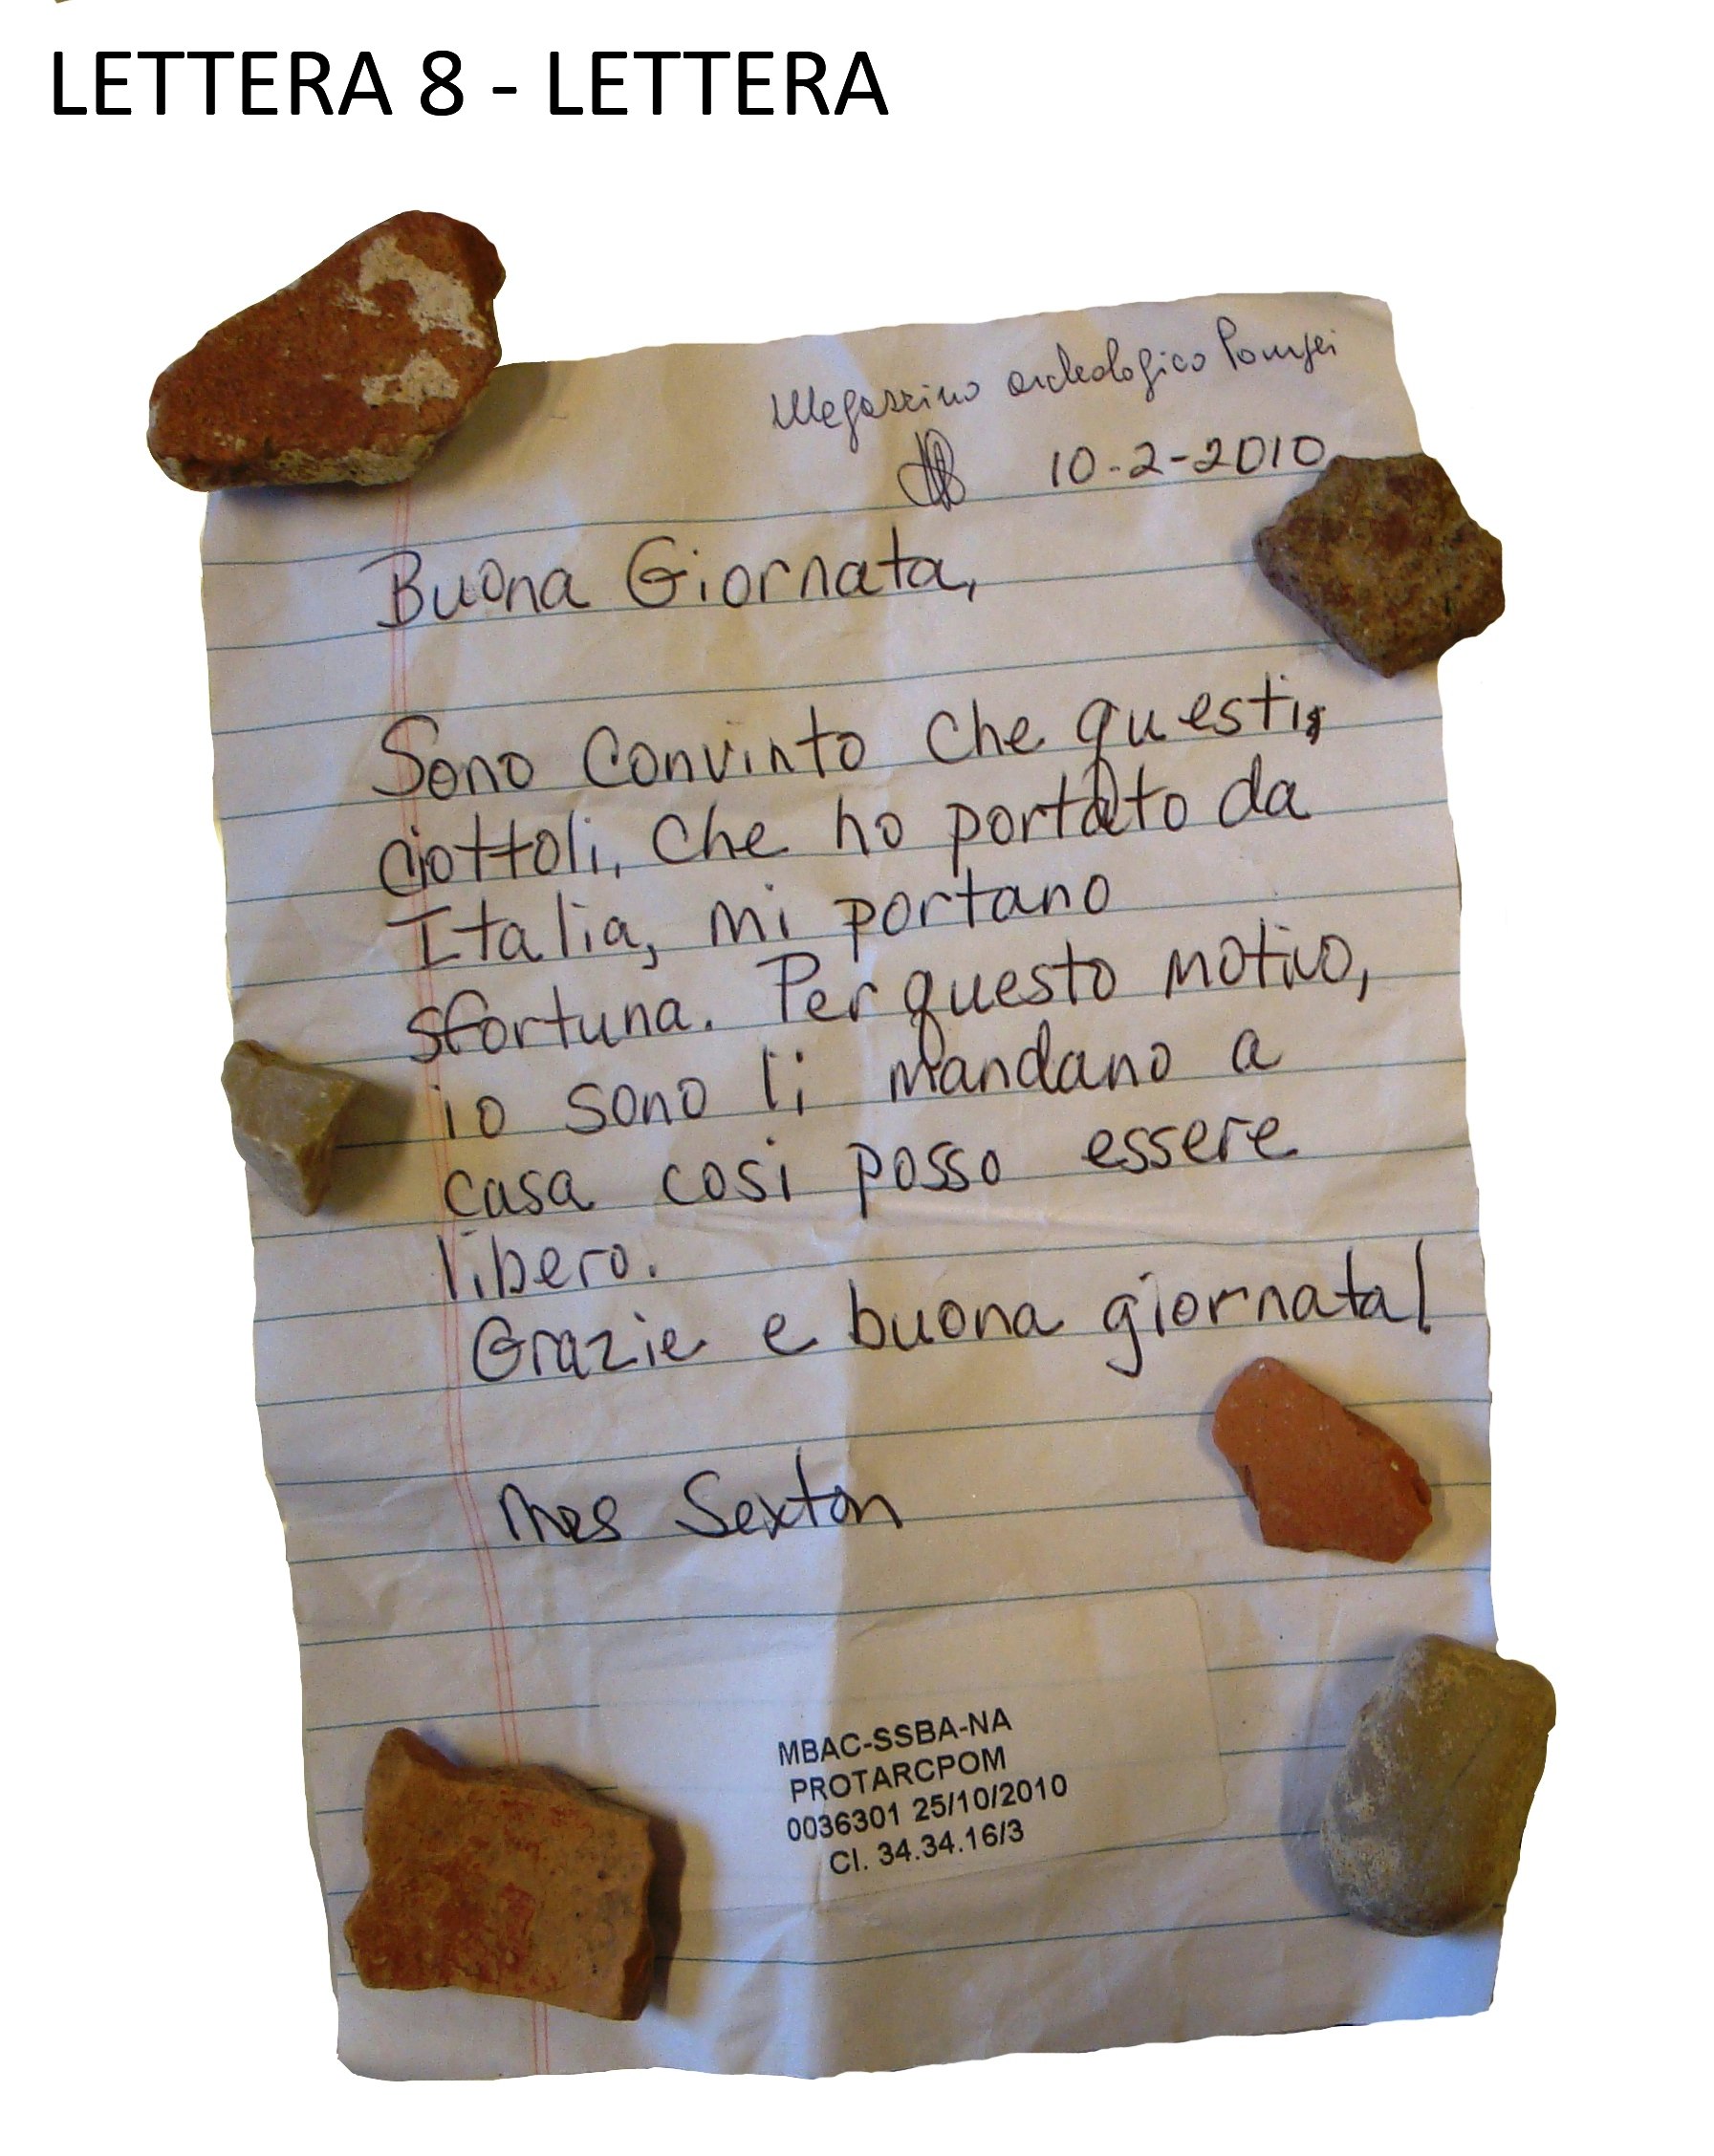 LETTERA 8 - LETTERA
Magazzino archeologico Pompei
10-2-2010
Buona Giornata,
Sono convinto che questi,
ciottoli, che ho portato da
Italia, mi portano
sfortuna. Per questo motivo,
io sono li mandano a
casa cosi posso essere
libero.
Grazie e buona giornata!
Sexton
MBAC-SSBA-NA
PROTARCPOM
0036301 25/10/2010
Cl. 34.34.16/3